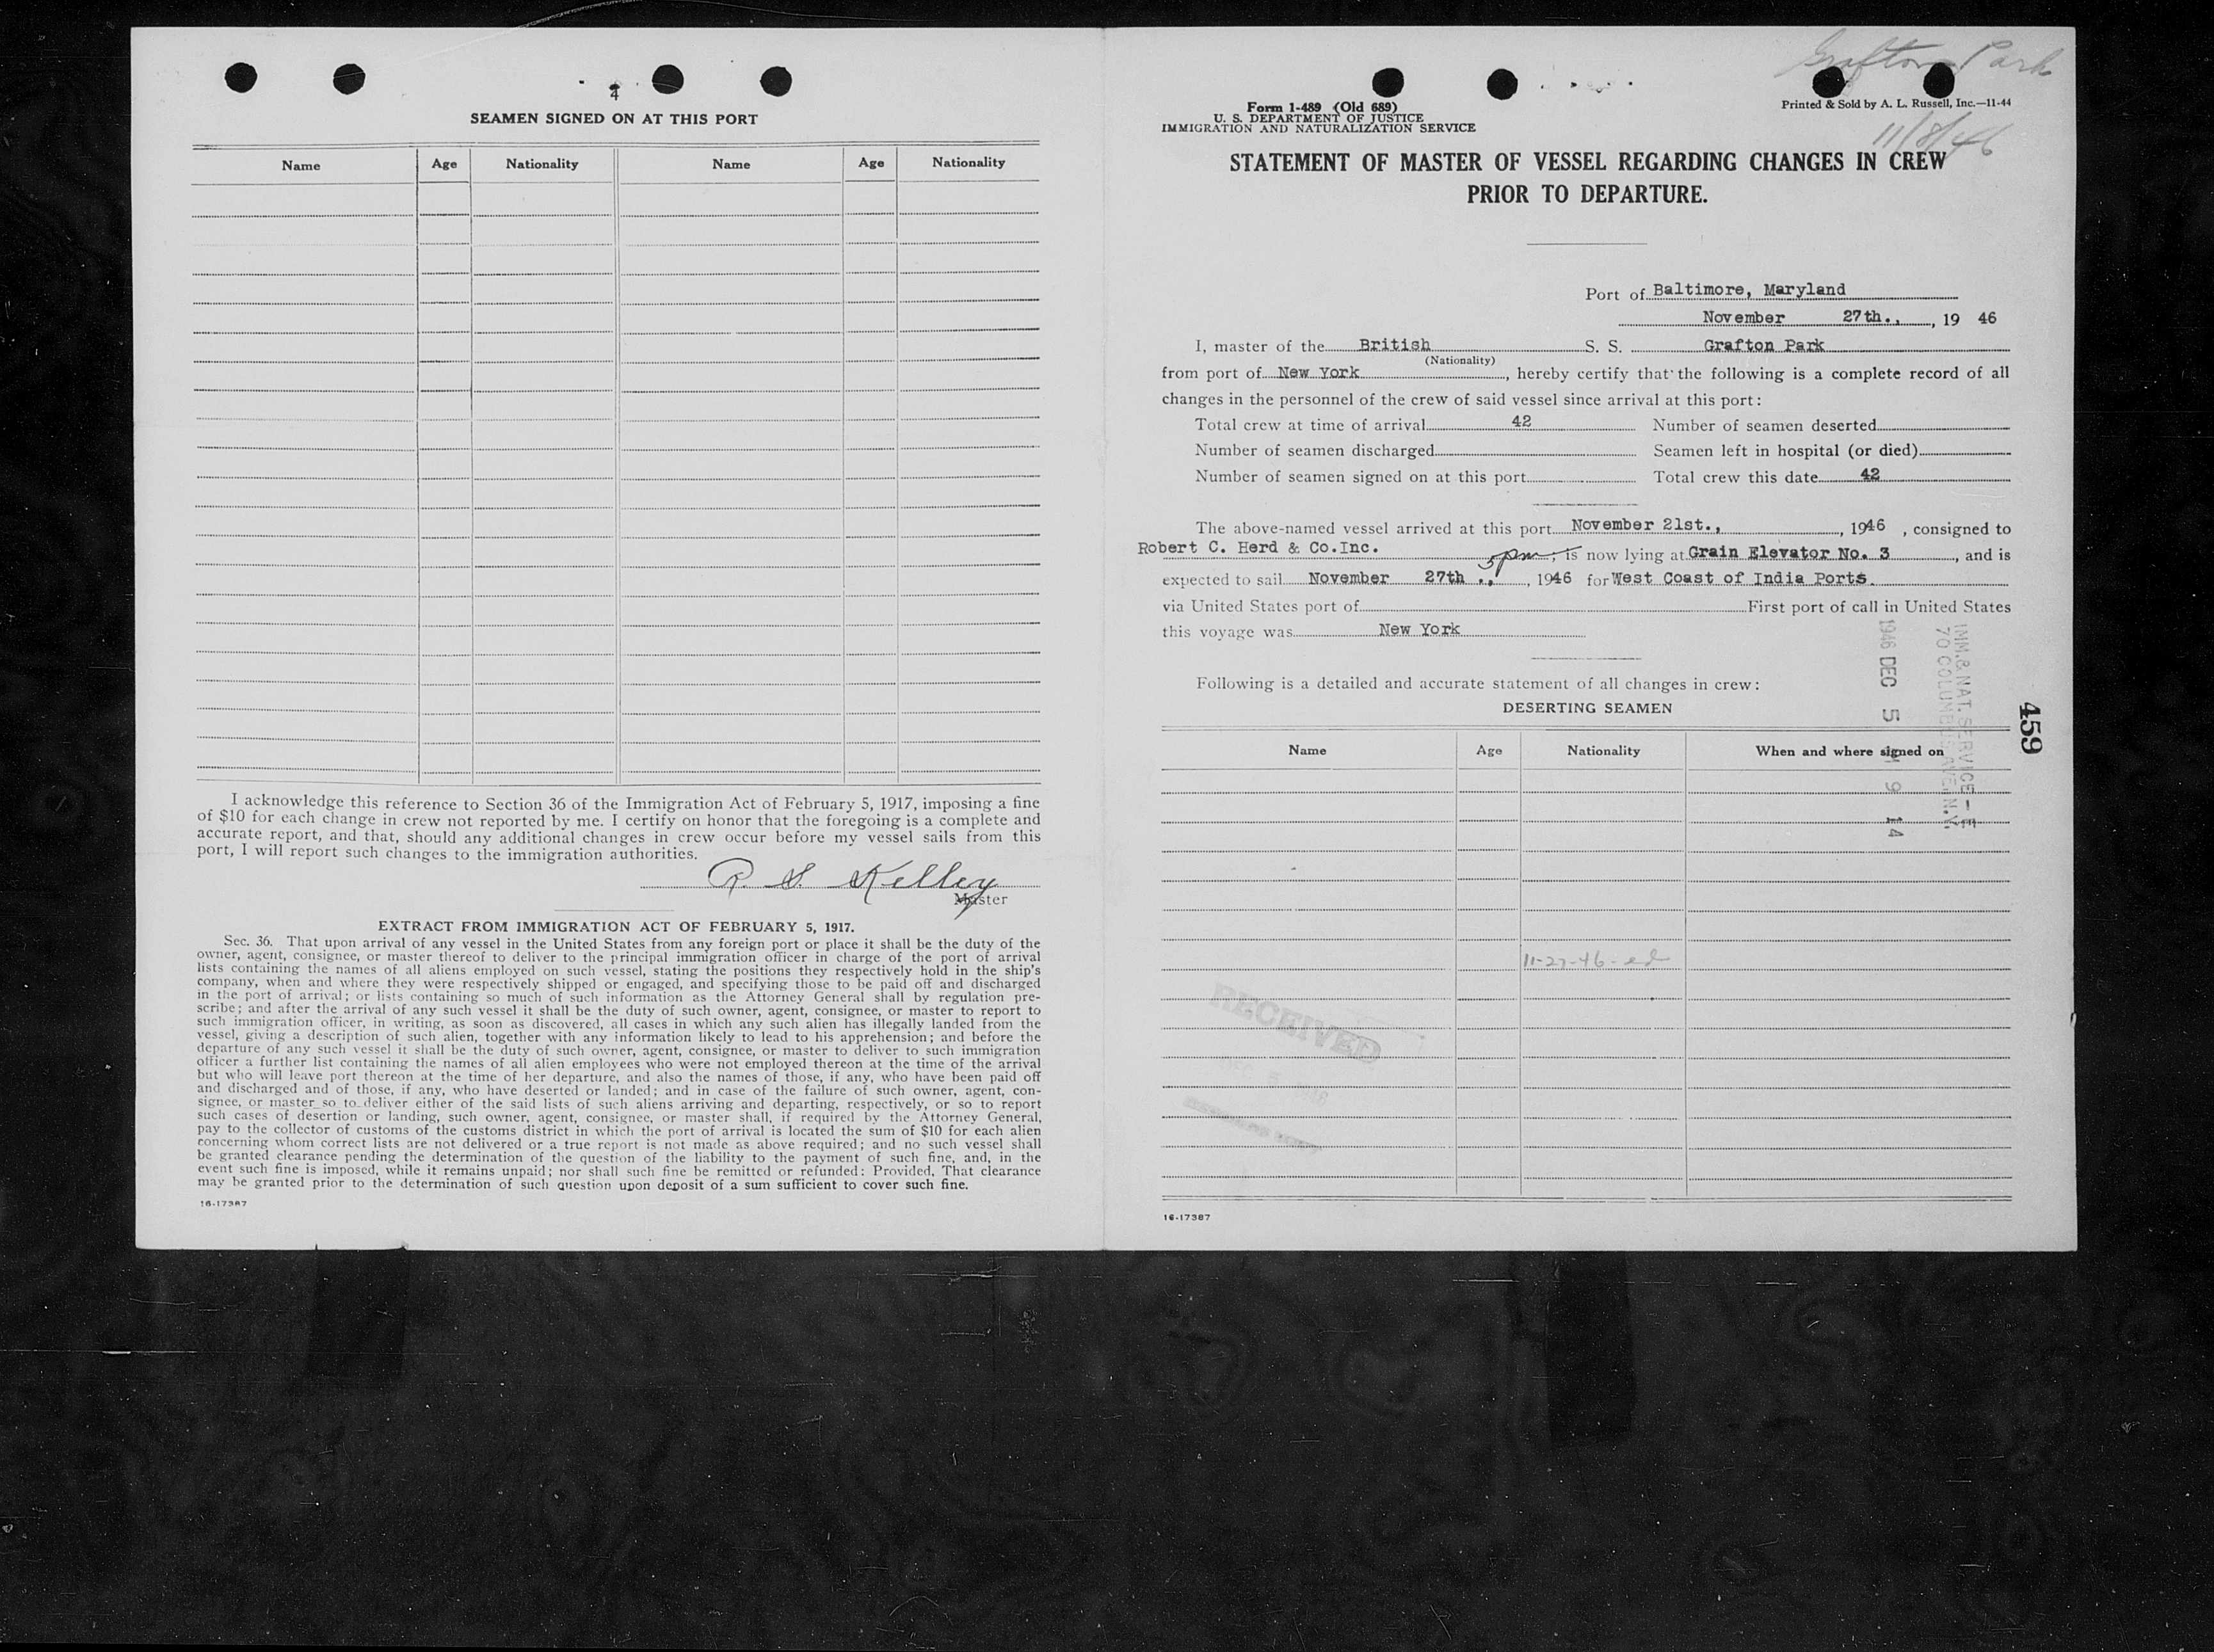 4
SEAMEN SIGNED ON AT THIS PORT
Name Age Nationality Name Age Nationality
I acknowledge this reference to Section 36 of the Immigration Act of February 5, 1917, imposing a fine
of $10 for each change in crew not reported by me. I certify on honor that the foregoing is a complete and
accurate report, and that, should any additional changes in crew occur before my vessel sails from this
port, I will report such changes to the immigration authorities.
R. S. Kelley
Master
EXTRACT FROM IMMIGRATION ACT OF FEBRUARY 5, 1917.
Sec. 36. That upon arrival of any vessel in the United States from any foreign port or place it shall be the duty of the
owner, agent, consignee, or master thereof to deliver to the principal immigration officer in charge of the port of arrival
lists containing the names of all aliens employed on such vessel, stating the positions they respectively hold in the ship's
company, when and where they were respectively shipped or engaged, and specifying those to be paid off and discharged
in the port of arrival; or lists containing so much of such information as the Attorney General shall by regulation pre-
scribe; and after the arrival of any such vessel it shall be the duty of such owner, agent, consignee, or master to report to
such immigration officer, in writing, as soon as discovered, all cases in which any such alien has illegally landed from the
vessel, giving a description of such alien, together with any information likely to lead to his apprehension; and before the
departure of any such vessel it shall be the duty of such owner, agent, consignee, or master to deliver to such immigration
officer a further list containing the names of all alien employees who were not employed thereon at the time of the arrival
but who will leave port thereon at the time of her departure, and also the names of those, if any, who have been paid off
and discharged and of those, if any, who have deserted or landed; and in case of the failure of such owner, agent, con-
signee, or master so to deliver either of the said lists of such aliens arriving and departing, respectively, or so to report
such cases of desertion or landing, such owner, agent, consignee, or master shall, if required by the Attorney General,
pay to the collector of customs of the customs district in which the port of arrival is located the sum of $10 for each alien
concerning whom correct lists are not delivered or a true report is not made as above required; and no such vessel shall
be granted clearance pending the determination of the question of the liability to the payment of such fine, and, in the
event such fine is imposed, while it remains unpaid; nor shall such fine be remitted or refunded: Provided, That clearance
may be granted prior to the determination of such question upon deposit of a sum sufficient to cover such fine.
16-17387
Grafton Park
Form 1-489 (Old 689)
U. S. DEPARTMENT OF JUSTICE
IMMIGRATION AND NATURALIZATION SERVICE
Printed & Sold by A. L. Russell, Inc.—11-44
11/8/46
STATEMENT OF MASTER OF VESSEL REGARDING CHANGES IN CREW
PRIOR TO DEPARTURE.
Port of Baltimore, Maryland
November 27th., , 19 46
I, master of the British S. S. Grafton Park
(Nationality)
from port of New York , hereby certify that the following is a complete record of all
changes in the personnel of the crew of said vessel since arrival at this port:
Total crew at time of arrival 42 Number of seamen deserted
Number of seamen discharged Seamen left in hospital (or died)
Number of seamen signed on at this port Total crew this date 42
The above-named vessel arrived at this port November 21st., , 1946 , consigned to
Robert C. Herd & Co.Inc. 5 pm , is now lying at Grain Elevator No. 3 , and is
expected to sail November 27th ., , 1946 for West Coast of India Ports.
via United States port of First port of call in United States
this voyage was New York
IMM. & NAT. SERVICE - E
70 COLUMBUS AVE. N.Y.
1946 DEC 5 9 14
459
Following is a detailed and accurate statement of all changes in crew:
DESERTING SEAMEN
Name Age Nationality When and where signed on
11-27-46-ed
RECEIVED
16-17387